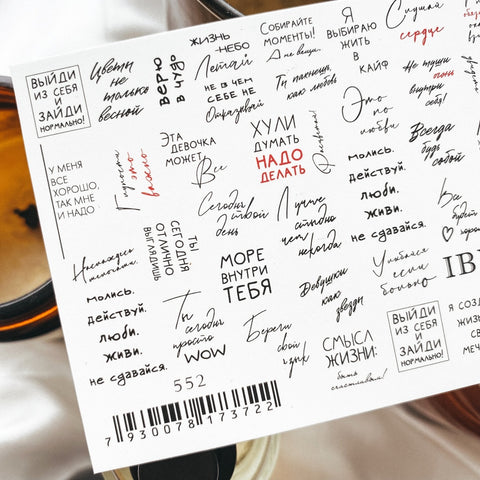 ВЫЙДИ
ИЗ СЕБЯ
И
ЗАЙДИ
НОРМАЛЬНО!
Цветы
не
только
весной
ВЕРЮ
В ЧУДО
ЖИЗНЬ -
НЕБО.
Летай
НЕ В ЧЕМ
СЕБЕ НЕ
Отказывай
СОБИРАЙТЕ
МОМЕНТЫ!
А не вещи.
Ты пахнешь,
как любовь
Я
ВЫБИРАЮ
ЖИТЬ
В
КАЙФ
Слушай
сердце
Не туши
огонь
внутри
себя!
У МЕНЯ
ВСЕ
ХОРОШО,
ТАК МНЕ
И НАДО
Глупости
это
важно
ЭТА
ДЕВОЧКА
МОЖЕТ
Все
ХУЛИ
ДУМАТЬ
НАДО
ДЕЛАТЬ
Это
по
любви
Всегда
будь
собой
молись.
действуй.
люби.
живи.
не сдавайся.
Наслаждайся
моментами.
ТЫ
СЕГОДНЯ
ОТЛИЧНО
ВЫГЛЯДИШЬ
Сегодня
твой
день
Лучше
стыдно
чем
никогда
МОРЕ
ВНУТРИ
ТЕБЯ
Девушки
как
звезды
Улыбайся
если
больно
Все
будет
хорошо
IB
молись.
действуй.
люби.
живи.
не сдавайся.
Ты
сегодня
просто
WOW
Береги
свой
язык
СМЫСЛ
ЖИЗНИ:
быть
счастливым!
ВЫЙДИ
ИЗ СЕБЯ
И
ЗАЙДИ
НОРМАЛЬНО!
Я СОЗД
ЖИЗН
СВО
МЕЧ
552
7 930078 173722